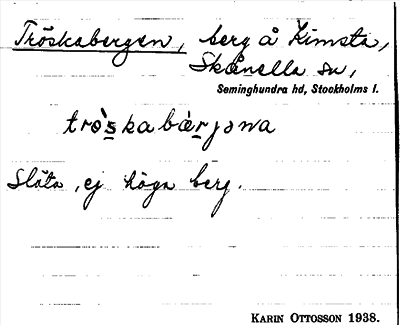 Tröskabergen, berg å Kimsta,
Skånella sn,
Seminghundra hd, Stockholms l.
trö̀skabàrjəna
Släta, ej höga berg.
KARIN OTTOSSON 1938.